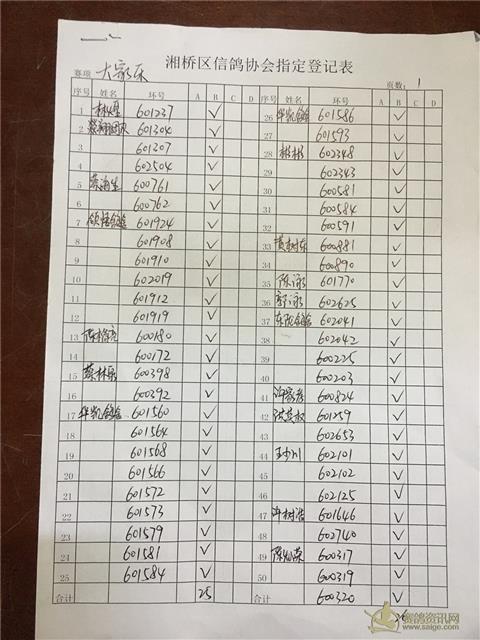 湘桥区信鸽协会指定登记表
赛项 大家乐 页数: 1
序号 姓名 环号 A B C D 序号 姓名 环号 A B C D
1 601237 ✓ 26 华凯鸽舍 601586 ✓
2 601304 ✓ 27 601593 ✓
3 601307 ✓ 28 彬彬 602348 ✓
4 602504 ✓ 29 602343 ✓
5 600761 ✓ 30 600581 ✓
6 600762 ✓ 31 600584 ✓
7 601924 ✓ 32 600591 ✓
8 601908 ✓ 33 600881 ✓
9 601910 ✓ 34 600890 ✓
10 602019 ✓ 35 601770 ✓
11 601912 ✓ 36 602625 ✓
12 601919 ✓ 37 602041 ✓
13 600180 ✓ 38 602042 ✓
14 600172 ✓ 39 600225 ✓
15 蔡林乐 600398 ✓ 40 600203 ✓
16 600392 ✓ 41 600824 ✓
17 华凯鸽舍 601560 ✓ 42 601259 ✓
18 601564 ✓ 43 602653 ✓
19 601568 ✓ 44 602101 ✓
20 601566 ✓ 45 602102 ✓
21 601572 ✓ 46 602125 ✓
22 601573 ✓ 47 许树浩 601646 ✓
23 601579 ✓ 48 602740 ✓
24 601581 ✓ 49 600317 ✓
25 601584 ✓ 50 600319 ✓
合计 25 合计 600320 ✓
26
赛鸽资讯网
www.saige.com